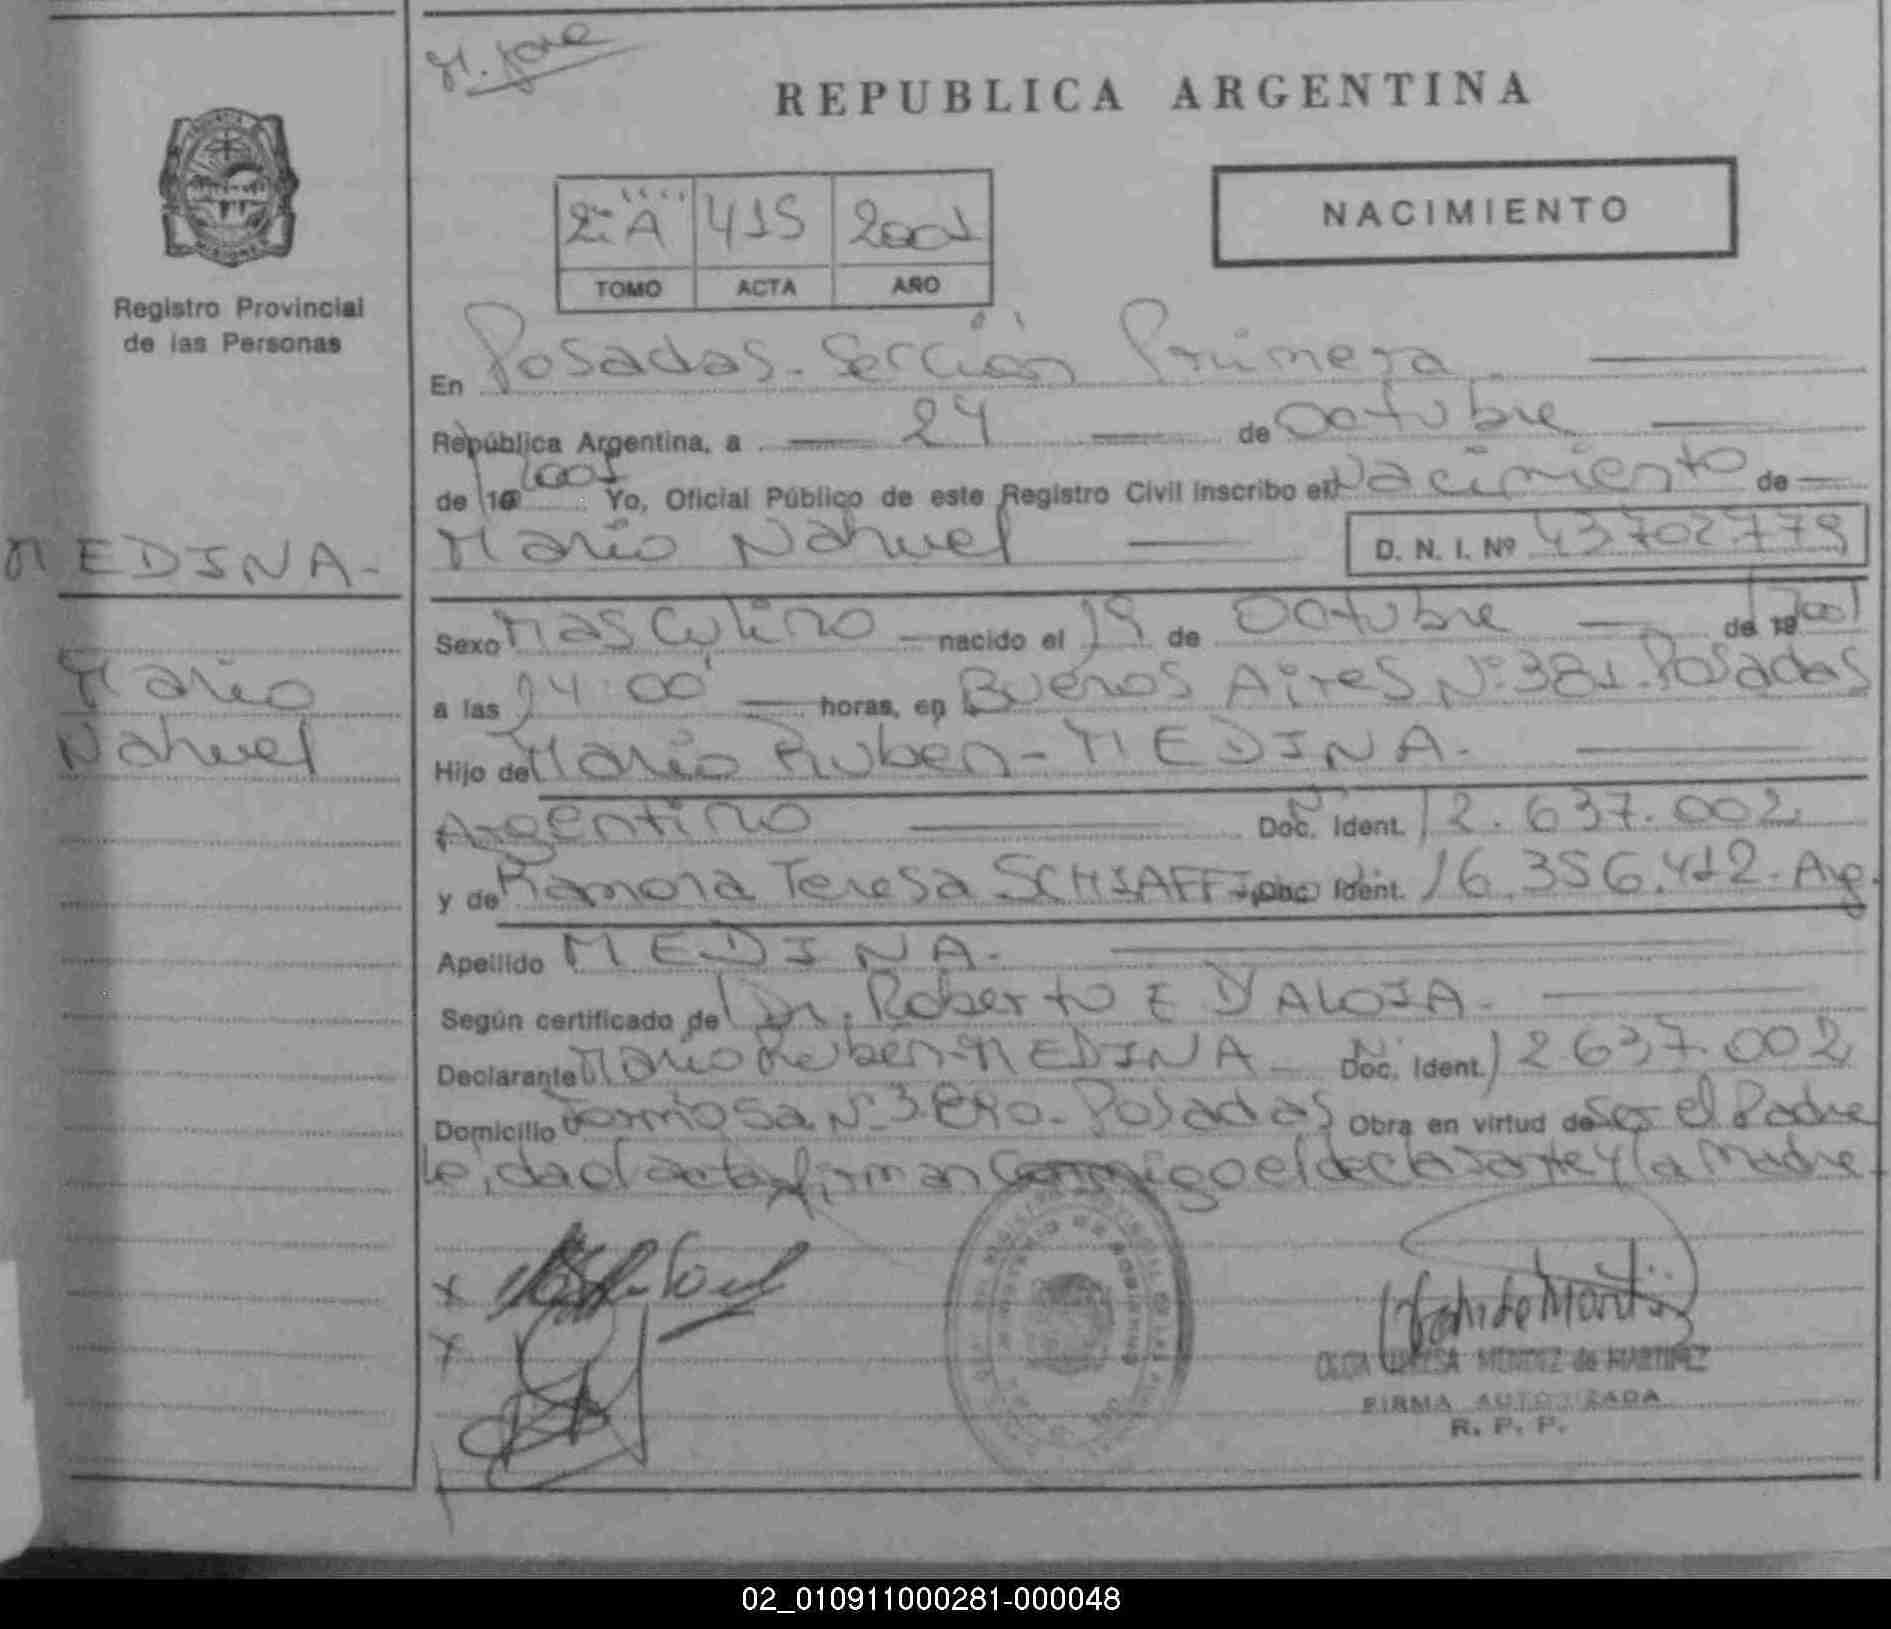 M. José
REPUBLICA ARGENTINA
NACIMIENTO
2º "A" 415 2001
TOMO ACTA AÑO
Registro Provincial
de las Personas
En Posadas - Sección Primera
República Argentina, a 24 de Octubre
de 19 2001 Yo, Oficial Público de este Registro Civil inscribo el Nacimiento de
MEDINA.-
Mario Nahuel D. N. I. Nº 43702.779
Sexo Masculino nacido el 19 de Octubre de 19 2001
Mario
Nahuel
a las 14:00' horas, en Buenos Aires Nº 381. Posadas
Hijo de Mario Ruben - MEDINA.
Argentino Doc. Ident. Nº 12.637.002
y de Ramona Teresa SCHIAFFINO Doc. Ident. 16.356.412. Arg.
Apellido MEDINA.
Según certificado de Dr. Roberto E D'ALOIA.
Declarante Mario Ruben - MEDINA Doc. Ident. Nº 12637.002
Domicilio Formosa Nº 3.890. Posadas Obra en virtud de Ser el Padre
Leida el acta firman Conmigo el declarante y la Madre.
x
x
OLGA TERESA MENDEZ de MARTINEZ
FIRMA AUTORIZADA
R. P. P.
02_010911000281-000048